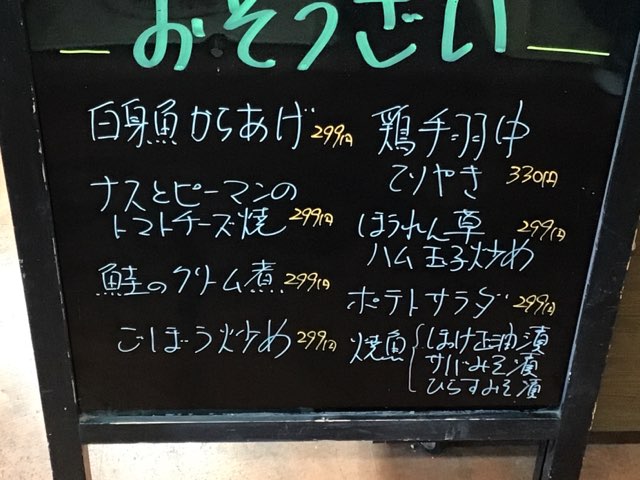 おそうざい
白身魚からあげ 299円
ナスとピーマンの
トマトチーズ焼 299円
鮭のクリーム煮 299円
ごぼう炒め 299円
鶏手羽中
てりやき 330円
ほうれん草 299円
ハム玉子炒め
ポテトサラダ 299円
焼魚
ほっけ正油漬
サバみそ漬
ひらすみそ漬